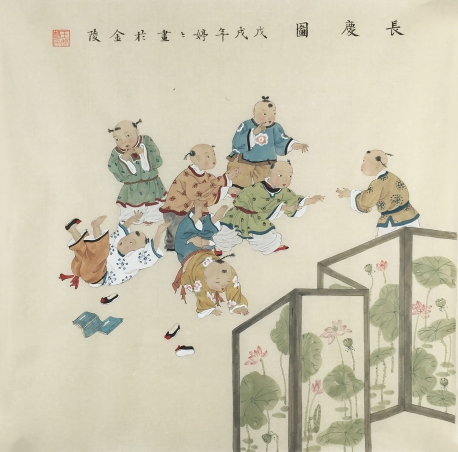 長慶圖 戊戌年婷〻畫於金陵